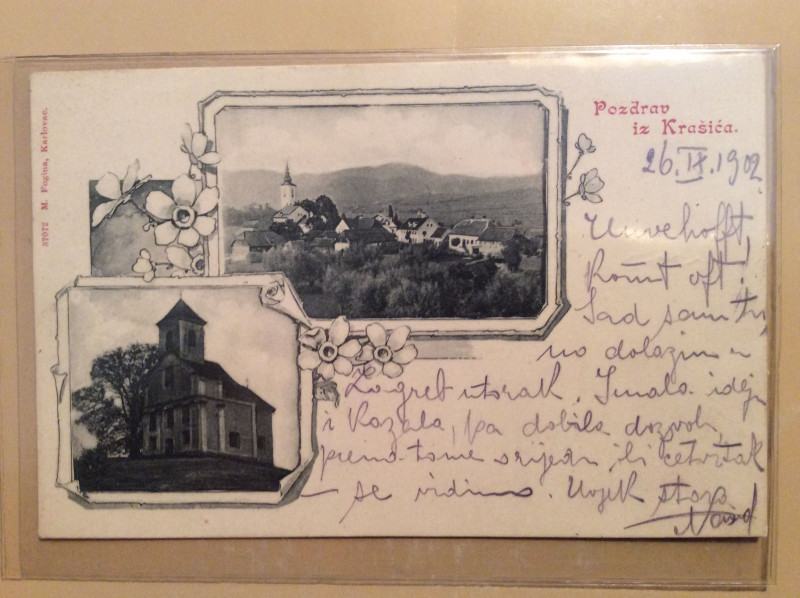 37072 M. Fogina, Karlovac.
Pozdrav
iz Krašića.
26. IX. 1902
Unverhofft,
kommt oft!
Sad sam tu,
no dolazim u
Zagreb utorak. Imala ideju
i kazala, pa dobila dozvolu,
prema tome srijedu ili četvrtak
se vidimo. Uvijek stara